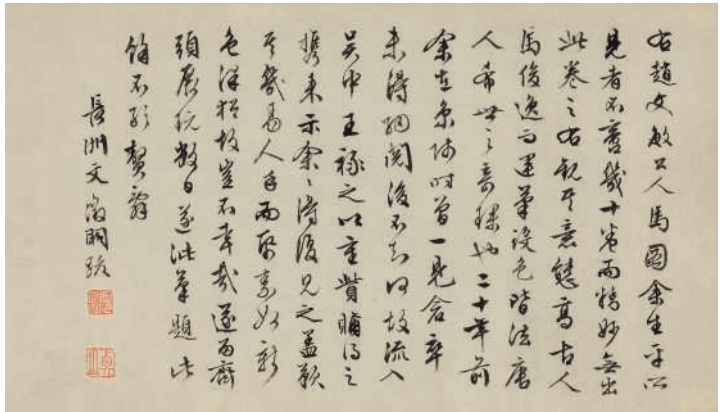 右趙文敏公人馬圖余生平所
見者不啻幾十卷而精妙無出
此卷之右觀其意態高古人
馬俊逸而運筆設色皆法唐
人希世之奇蹟也二十年前
余在京師時曾一見倉卒
未得細閱後不知何故流入
吳中王祿之以重貲購得之
攜來示余〻得復見之蓋歎
其幾易人手而如新
色澤猶故豈不幸哉遂留齋
頭展玩數日遂泚筆題此
餘不贅
長洲文徵明跋